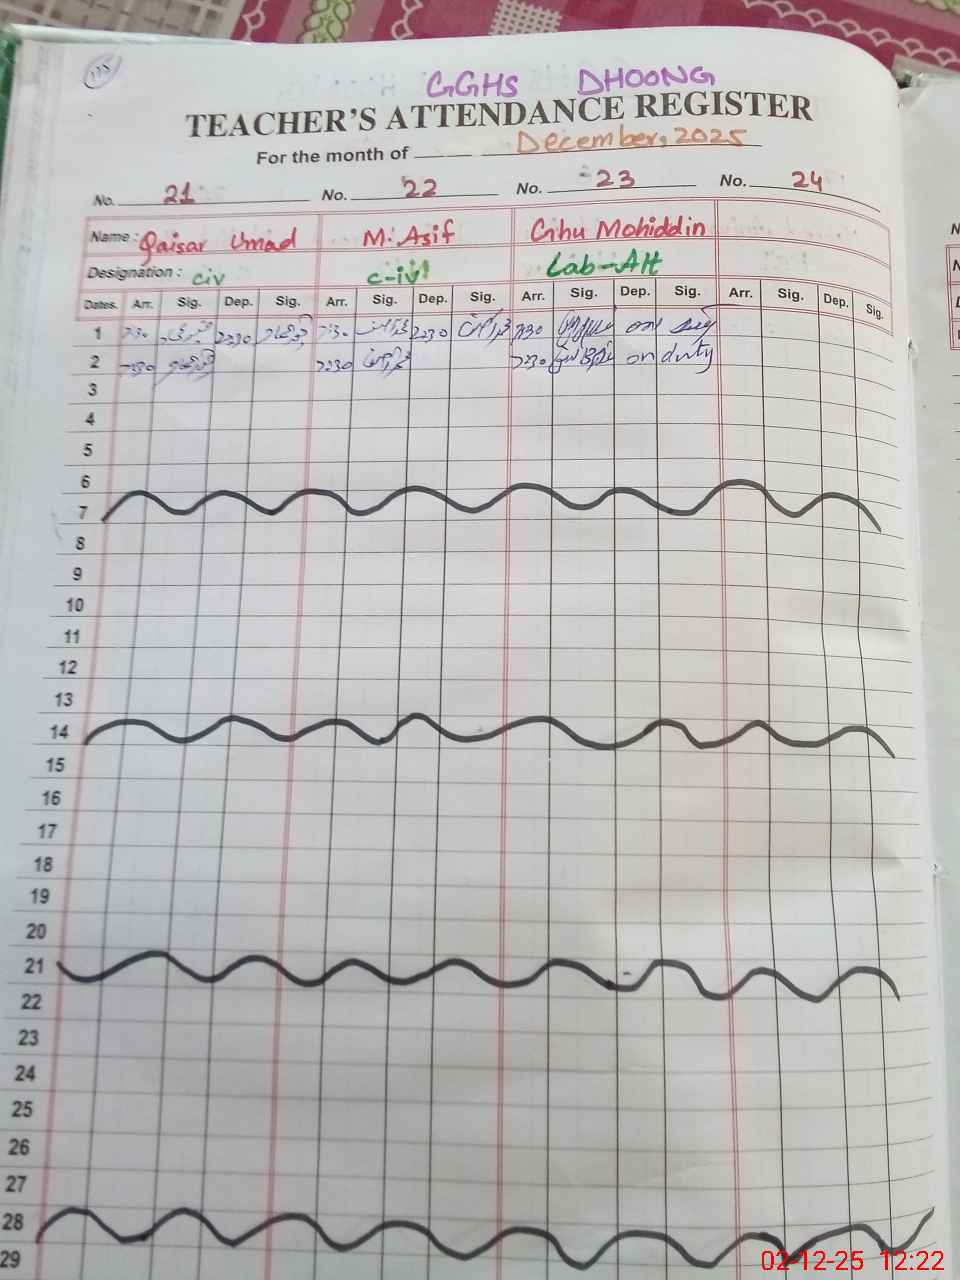 GGHS DHOONG
TEACHER'S ATTENDANCE REGISTER
For the month of December, 2025
No. 21 No. 22 No. 23 No. 24
Name : Qaisar Umad M. Asif Ghu Mohiddin
Designation : civ c-iv Lab-Att
Dates. Arr. Sig. Dep. Sig. Arr. Sig. Dep. Sig. Arr. Sig. Dep. Sig. Arr. Sig. Dep. Sig.
1 7:30 2:30 7:30 2:30 7:30 on
2 7:30 7:30 7:30 on duty
3
4
5
6
7
8
9
10
11
12
13
14
15
16
17
18
19
20
21
22
23
24
25
26
27
28
29
02-12-25 12:22